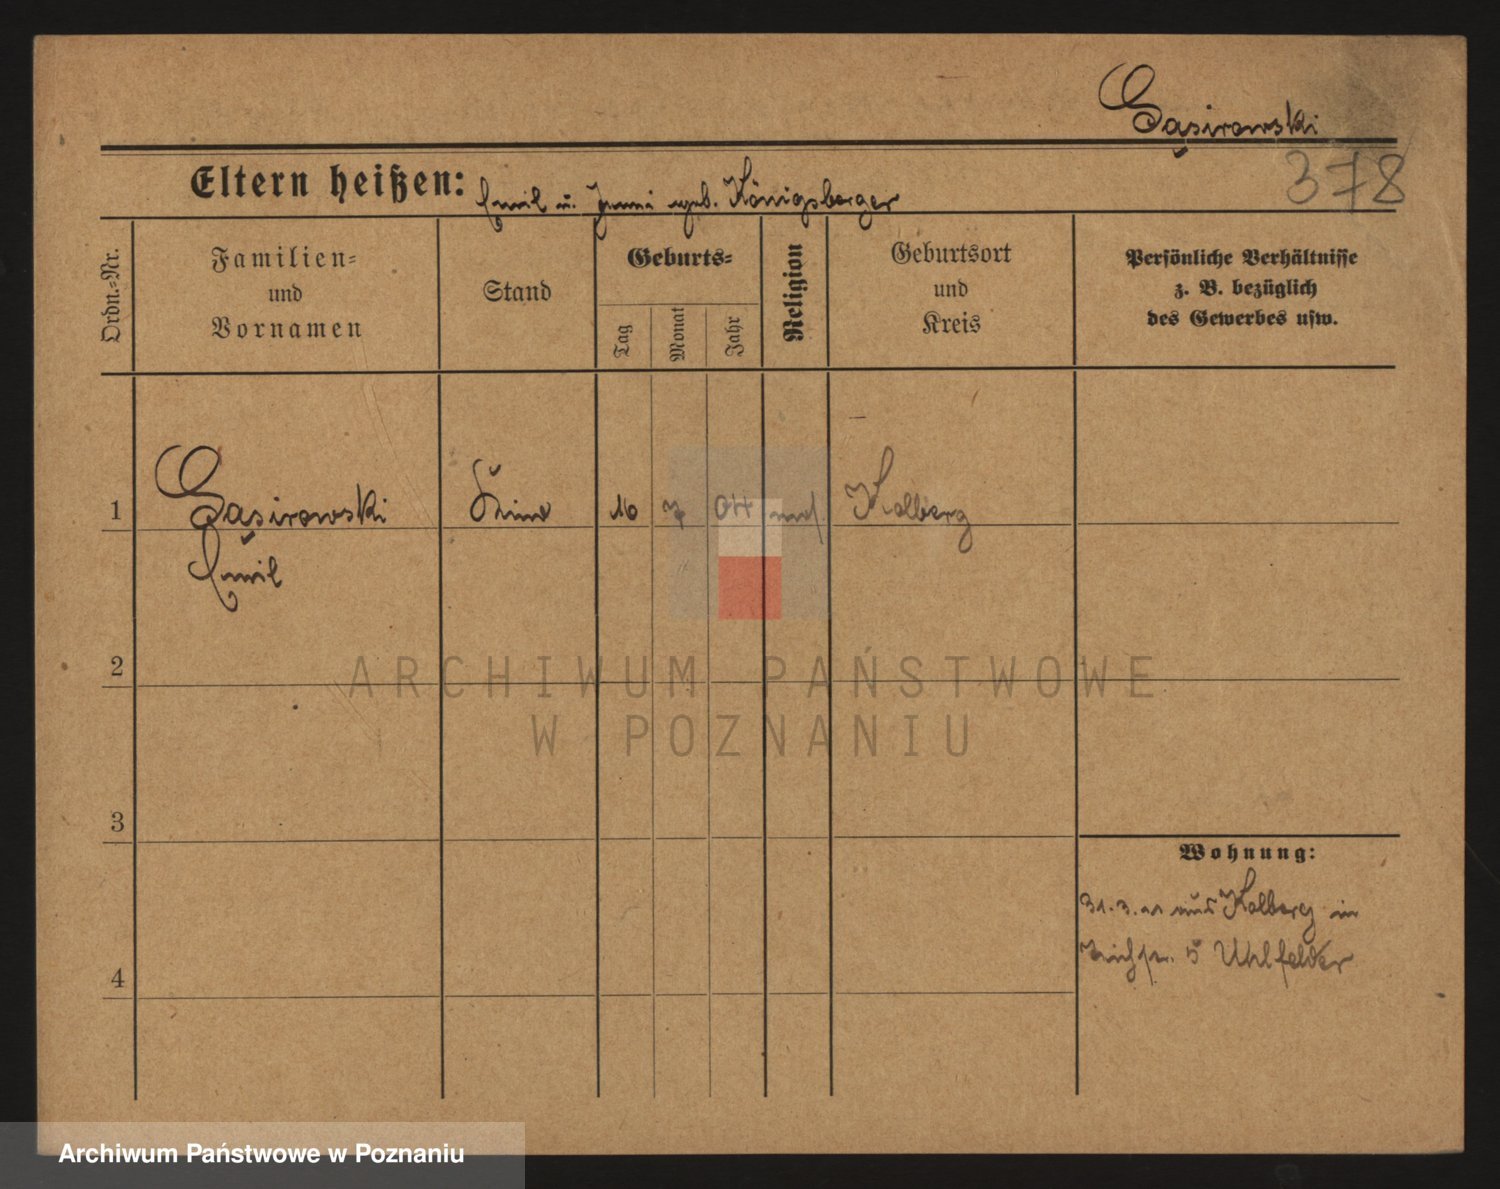 Gąsirowski
378
Eltern heißen: Emil u. Jenni geb. Königsberger
Ordn.-Nr.
Familien-
und
Vornamen
Stand
Geburts-
Tag
Monat
Jahr
Religion
Geburtsort
und
Kreis
Persönliche Verhältnisse
z. B. bezüglich
des Gewerbes usw.
1 Gąsirowski Kind 16 7 04 mos. Kolberg
Emil
2
3
Wohnung:
31.3.11 aus Kolberg in
5 Uhlfelder
4
ARCHIWUM PAŃSTWOWE
W POZNANIU
Archiwum Państwowe w Poznaniu